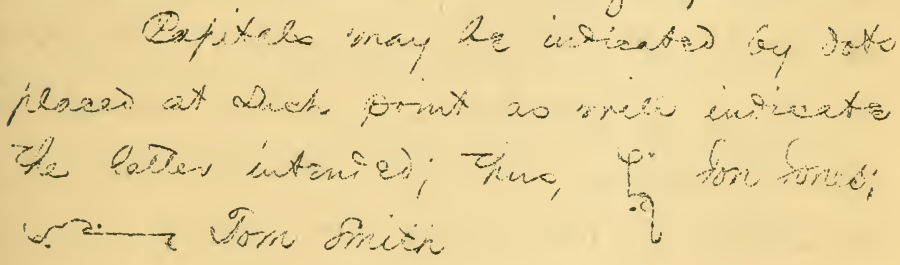 Capitals may be indicated by dots
placed at such point as will indicate
the letter intended; thus, Jon Jones;
Tom Smith